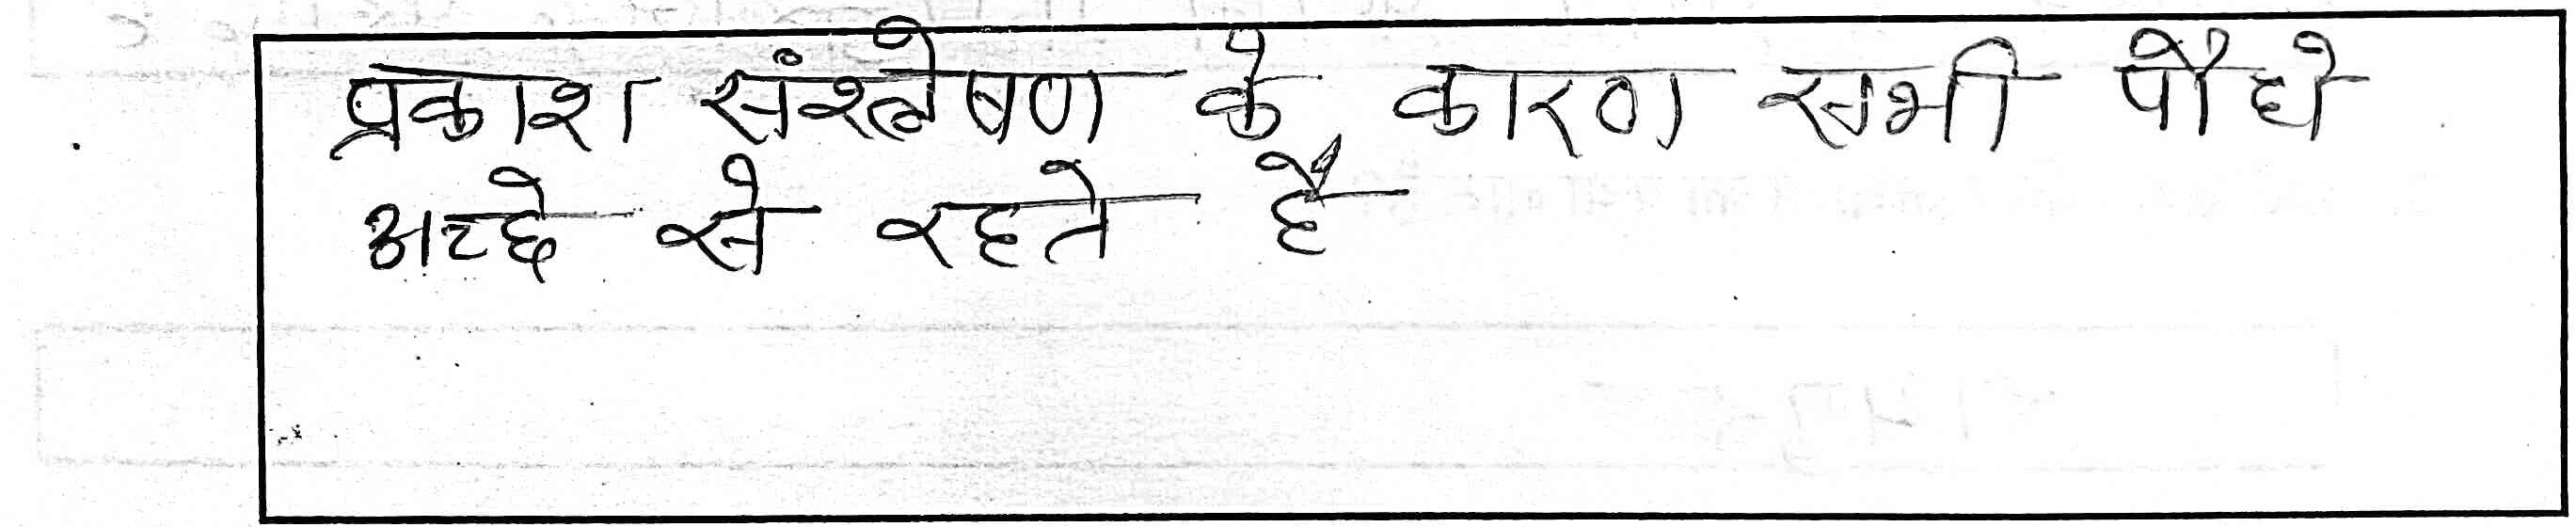 प्रकाश संश्लेषण के कारण सभी पौधे
अच्छे से रहते है